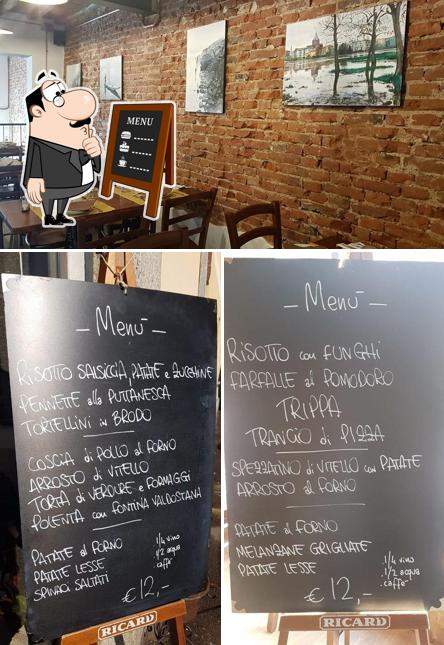 MENU
- Menù -
RISOTTO SALSICCIA, PATATE e ZUCCHINE
PENNETTE alla PUTTANESCA
TORTELLINI in BRODO
COSCIA di POLLO al FORNO
ARROSTO di VITELLO
TORTA di VERDURE e FORMAGGI
POLENTA con FONTINA VALDOSTANA
PATATE al FORNO
PATATE LESSE
SPINACI SALTATI
1/4 vino
1/2 acqua
caffè
€ 12,-
RICARD
- Menù -
RISOTTO con FUNGHI
FARFALLE al POMODORO
TRIPPA
TRANCIO di PIZZA
SPEZZATINO di VITELLO con PATATE
ARROSTO al FORNO
PATATE al FORNO
MELANZANE GRIGLIATE
PATATE LESSE
1/4 vino
1/2 acqua
caffè
€ 12,-
RICARD